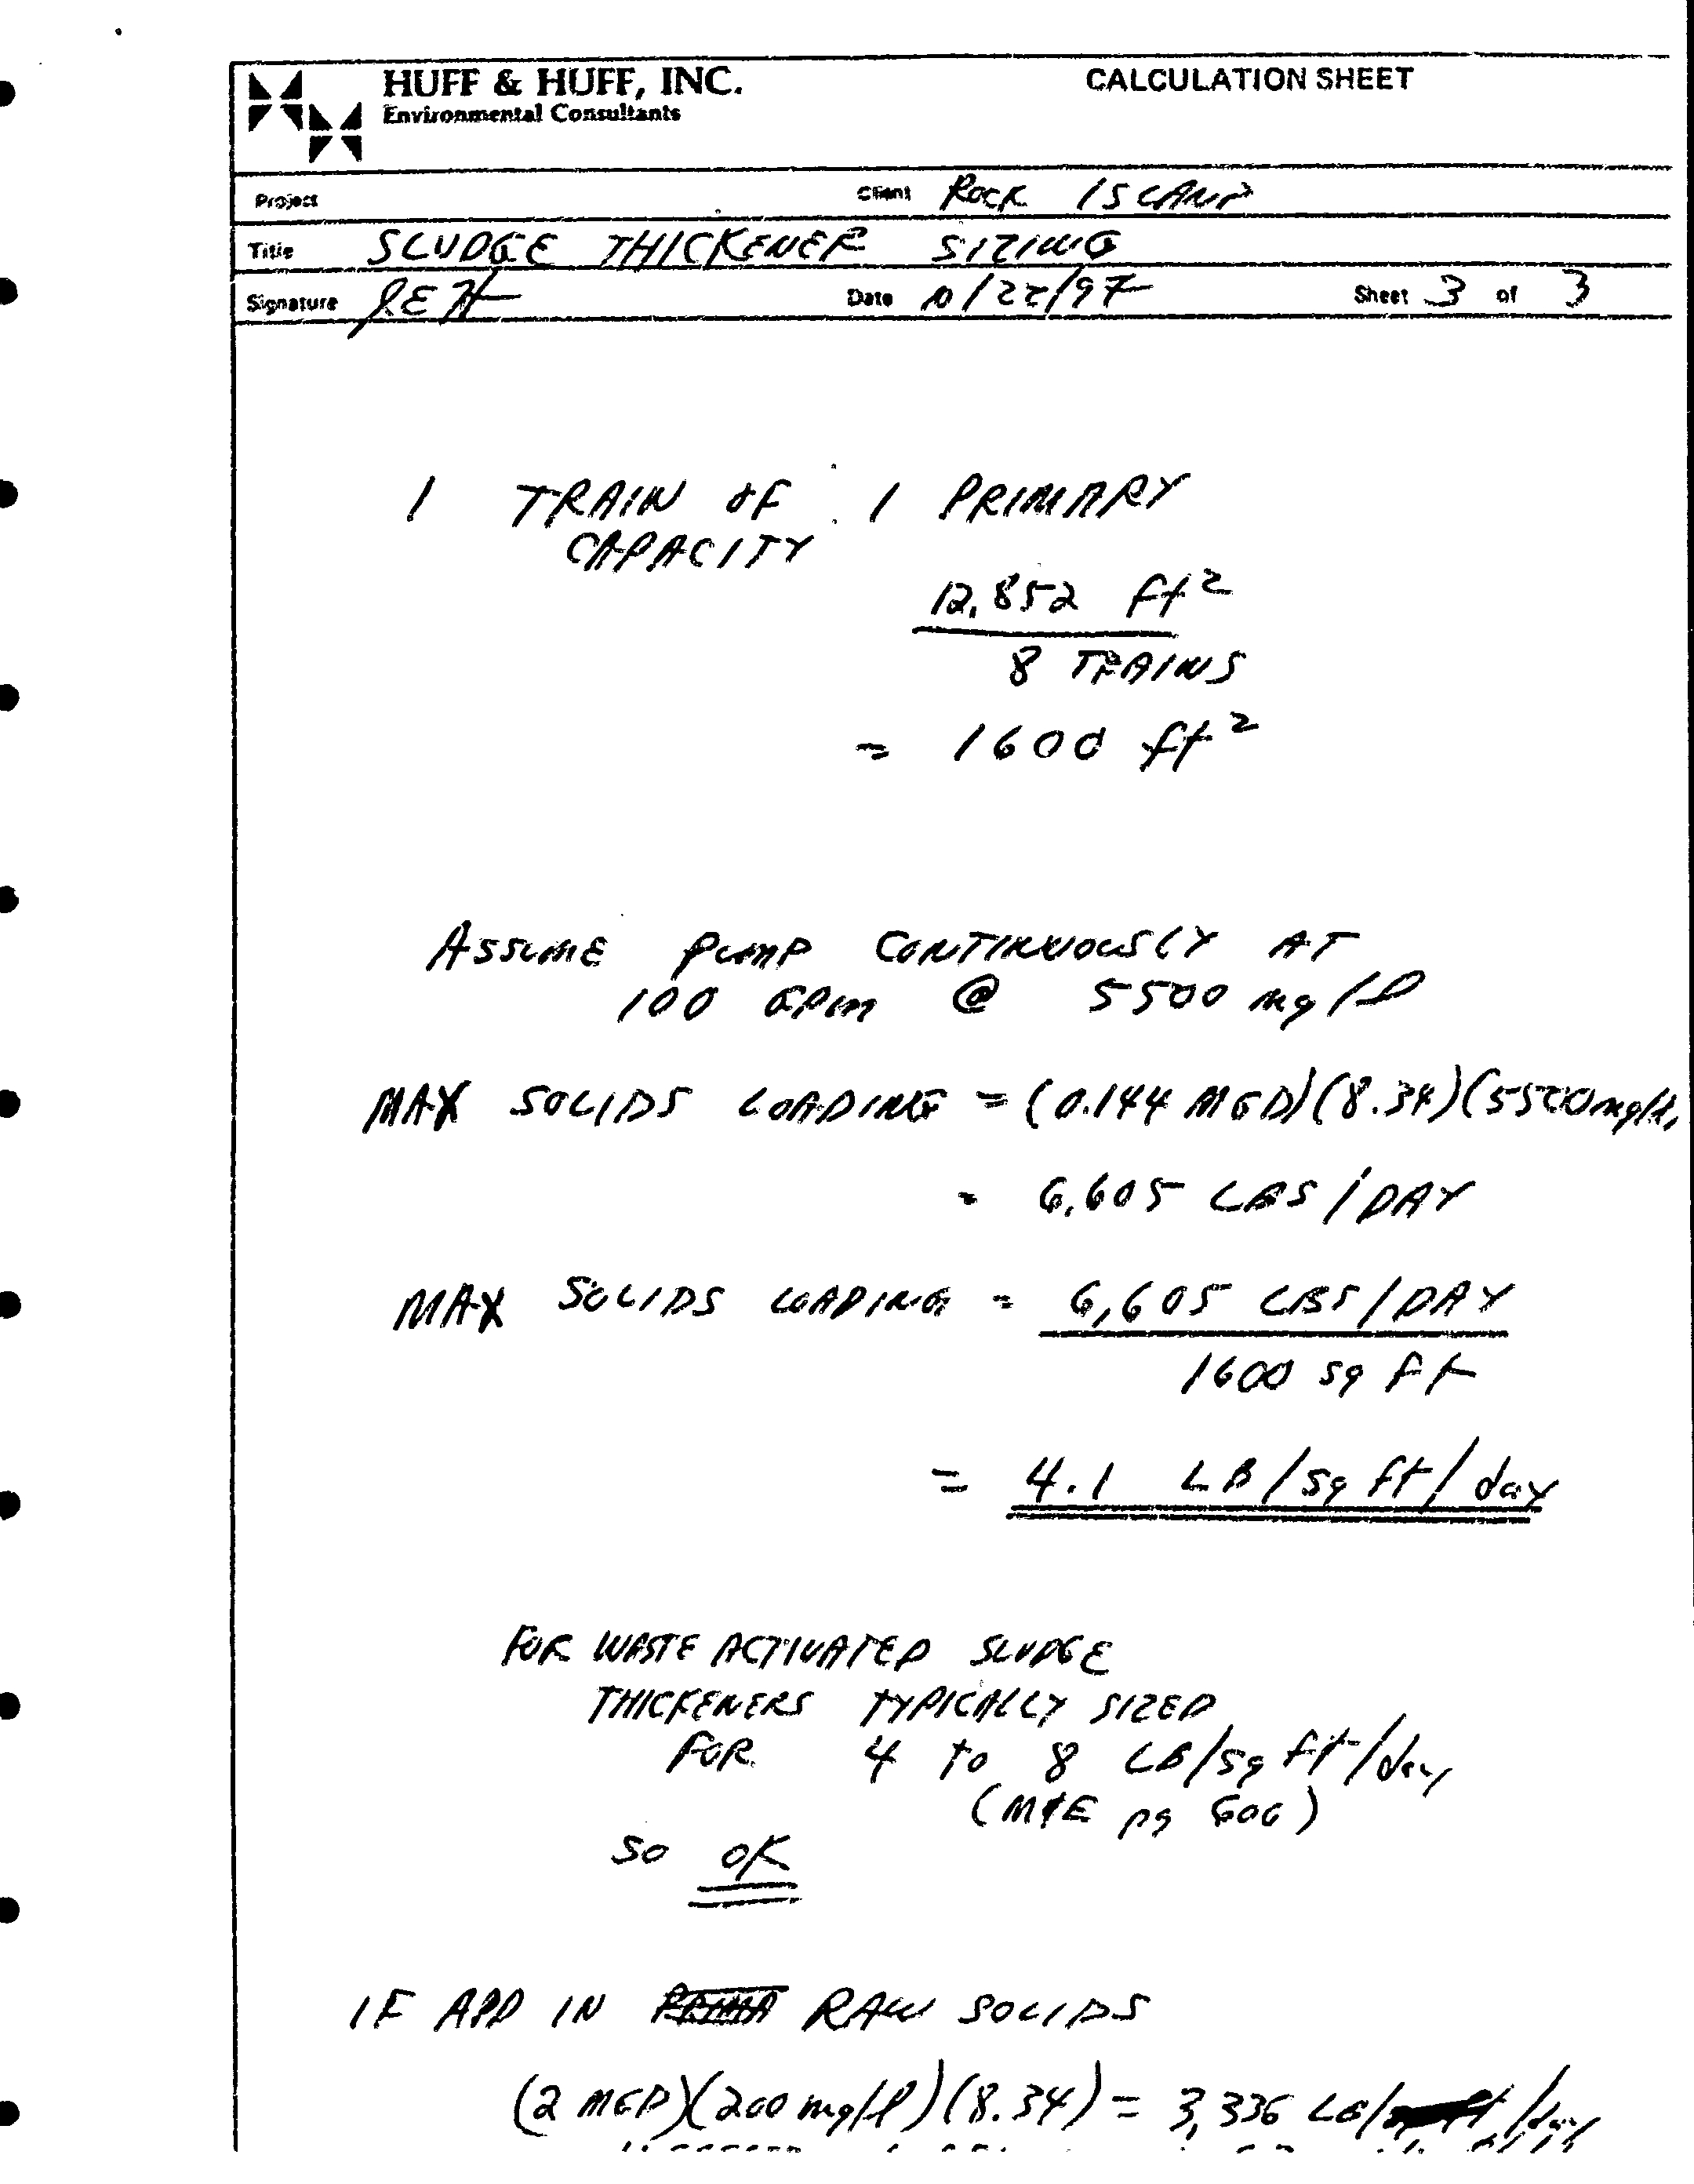 HUFF & HUFF, INC. CALCULATION SHEET
Environmental Consultants
Project Client ROCK ISLAND
Title SLUDGE THICKENER SIZING
Signature JEH Date 10/22/97 Sheet 3 of 3
1 TRAIN OF 1 PRIMARY
CAPACITY
12,852 ft²
8 TRAINS
= 1600 ft²
ASSUME PUMP CONTINUOUSLY AT
100 GPM @ 5500 mg/l
MAX SOLIDS LOADING = (0.144 MGD)(8.34)(5500 mg/l)
= 6,605 LBS/DAY
MAX SOLIDS LOADING = 6,605 LBS/DAY
1600 sq ft
= 4.1 LB/sq ft/day
FOR WASTE ACTIVATED SLUDGE
THICKENERS TYPICALLY SIZED
FOR 4 to 8 LB/sq ft/day
(M&E pg 606)
SO OK
IF ADD IN RAW SOLIDS
(2 MGD)(200 mg/l)(8.34) = 3,336 LB/day